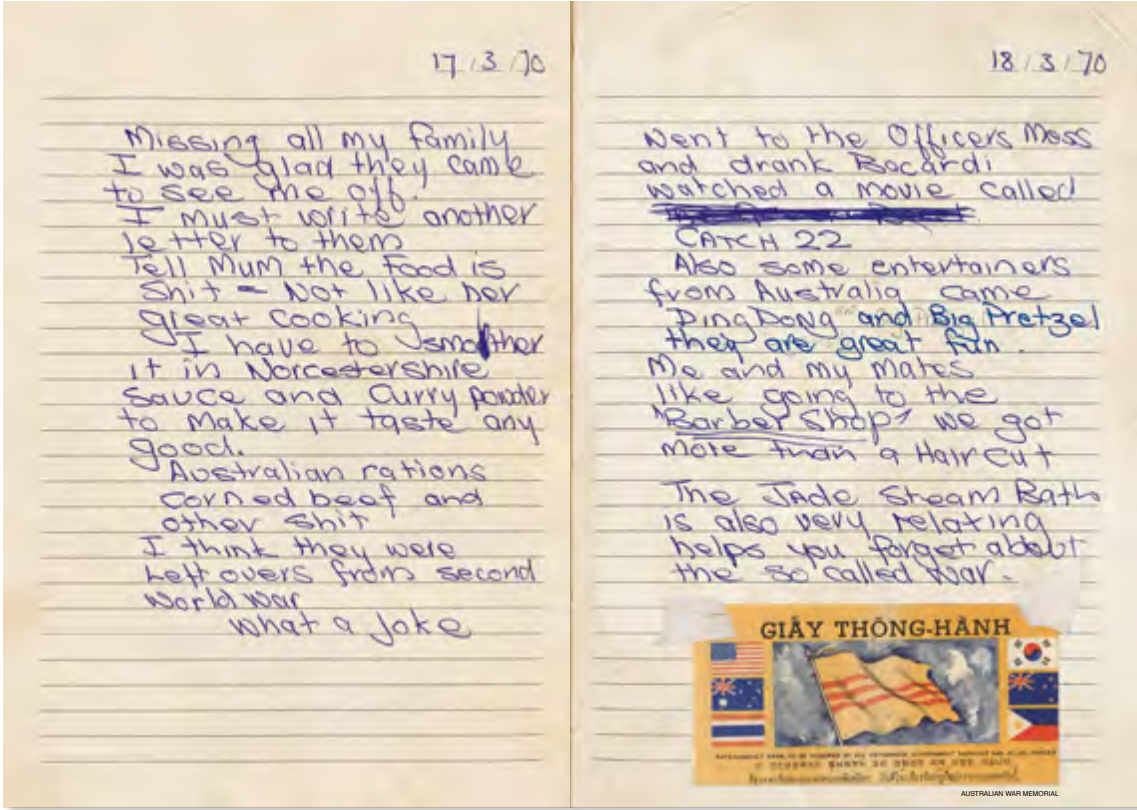 17/3/70
Missing all my family
I was glad they came
to see me off.
I must write another
letter to them
Tell Mum the food is
shit - Not like her
great cooking
I have to smother
it in Worcestershire
sauce and Curry powder
to make it taste any
good.
Australian rations
corned beef and
other shit
I think they were
Left overs from second
World War
What a Joke
18/3/70
Went to the Officers Mess
and drank Bacardi
watched a movie called
CATCH 22
Also some entertainers
from Australia came
Ding Dong and Big Pretzel
they are great fun.
Me and my Mates
like going to the
"Barber Shop" we got
More than a Hair cut
The JAde Steam Bath
is also very relaxing
helps you forget about
the so called War.
GIẤY THÔNG-HÀNH
AUSTRALIAN WAR MEMORIAL